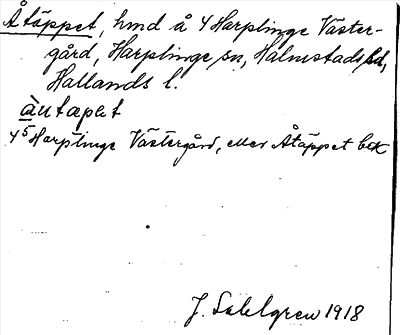 Åtäppet, hmd å 4 Harplinge Väster-
gård, Harplinge sn, Halmstads hd,
Hallands l.
àutapet
4⁵ Harplinge Västergård, eller Åtäppet bek
J. Sahlgren 1918